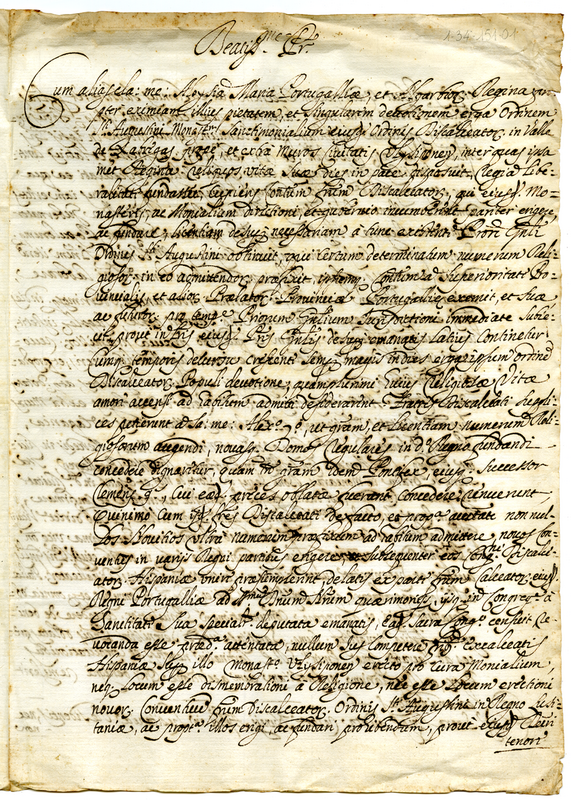 Beatis.me Pr.
1-34-151-01
Cum alias cla: me: Aloysia Maria Portugalliæ, et Algarbior. Regina prop-
ter eximiam illius pietatem, et singularem devotionem erga Ordinem
S.ti Augustini Monast. Sanctimonialium eiusd. Ordinis Discalceator. in Valle
de extra Muros Civitatis Ulissiponen, inter quas ipsa
met Regina religiosæ vitæ suæ dies in pace Regia libe-
ralitate fundasset, frum Discalceator, qui eiusd. Mo-
nasterij, ac Monialium directioni, et gubernio incumberent pariter erigere,
ac fundare, licentiam desup. necessariam a tunc existente Priori Gnli
Ordinis S.ti Augustini obtinuit, qui certum determinatum numerum Reli-
giosor. in eo admittendor. præfixit, Superioritate Pro-
vincialis, et alior. Prælator. Provinciæ Portugalliæ exemit, et suæ
ac futuror. pro tempe Priorum Gnlium Jurisdictioni immediate subie-
cit, prout in eiusd. Pris Gnlis desup. emanatis latius continetur
Cumq. temporis decursu crescenti semp. magis in dies erga ipsum ordine
Discalceator. Populi devotione, quamplurimi huius Religiosæ Vitæ
amori accensi ad habitum admitti desiderarent, Fratres Discalceati suppli-
ces petierunt a sa: me: Alex. ut gram, et licentiam numerum Reli-
giosorum augendi, novasq. Domos Regulares in d. Regno fundandi
concedere dignaretur, quam gram idem Pontifex eiusq. Successor
Clemens 9., cui eæd. preces oblatæ fuerunt concedere renuerunt
Quinimo cum ipsi fres Discalceati de facto, et prop. auctate non nul-
los Novitios ultra numerum præfixum ad habitum admittere, novos con-
ventus in varijs Regni partibus erigere, subsequenter eos Cong.ni Discalce-
ator. Hispaniæ uniri præsumpserint, delatis ex parte frum Calceator. eiusd.
Regni Portugalliæ ad Smum Dnum Nrum quærimonijs, ijsq. in Congreg.e a
Sanctitate Sua specialr. deputata emanatis, Ead. Sacra Cong. censuit re-
vocanda esse præd. attentata, nullum Jus competere Discalceatis
Hispaniæ sup. illo monast.o Ulissiponen erecto pro cura Monialium,
neq. locum esse dismembrationi a Religione, nec esse locum erectioni
novor. Conventuum frum Discalceator. Ordinis S.ti Augustini in Regno Lusi-
taniæ, ac propt.a illos erigi, ac fundari prohibendum, prout eiusd. Decreti
tenori